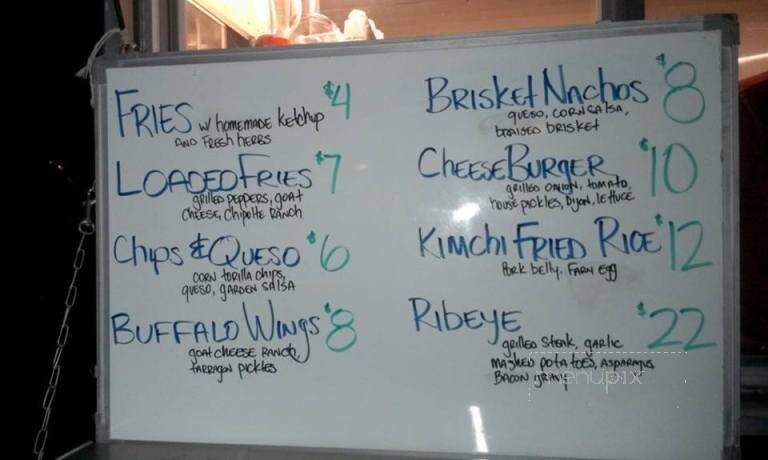 FRIES w/ homemade ketchup $4
AND FRESH HERBS
LOADED FRIES $7
grilled peppers, goat
cheese, chipotle ranch
Chips & Queso $6
corn torilla chips,
queso, garden salsa
BUFFALO Wings $8
goat cheese ranch,
tarragon pickles
BRISKET NACHOS $8
queso, corn salsa,
braised brisket
CHEESEBURGER $10
grilled onion, tomato,
house pickles, dijon, lettuce
KIMCHI FRIED RICE $12
Pork belly, FARM Egg
RIBEYE $22
grilled steak, garlic
mashed potatoes, asparagus,
BACON gravy
menupix